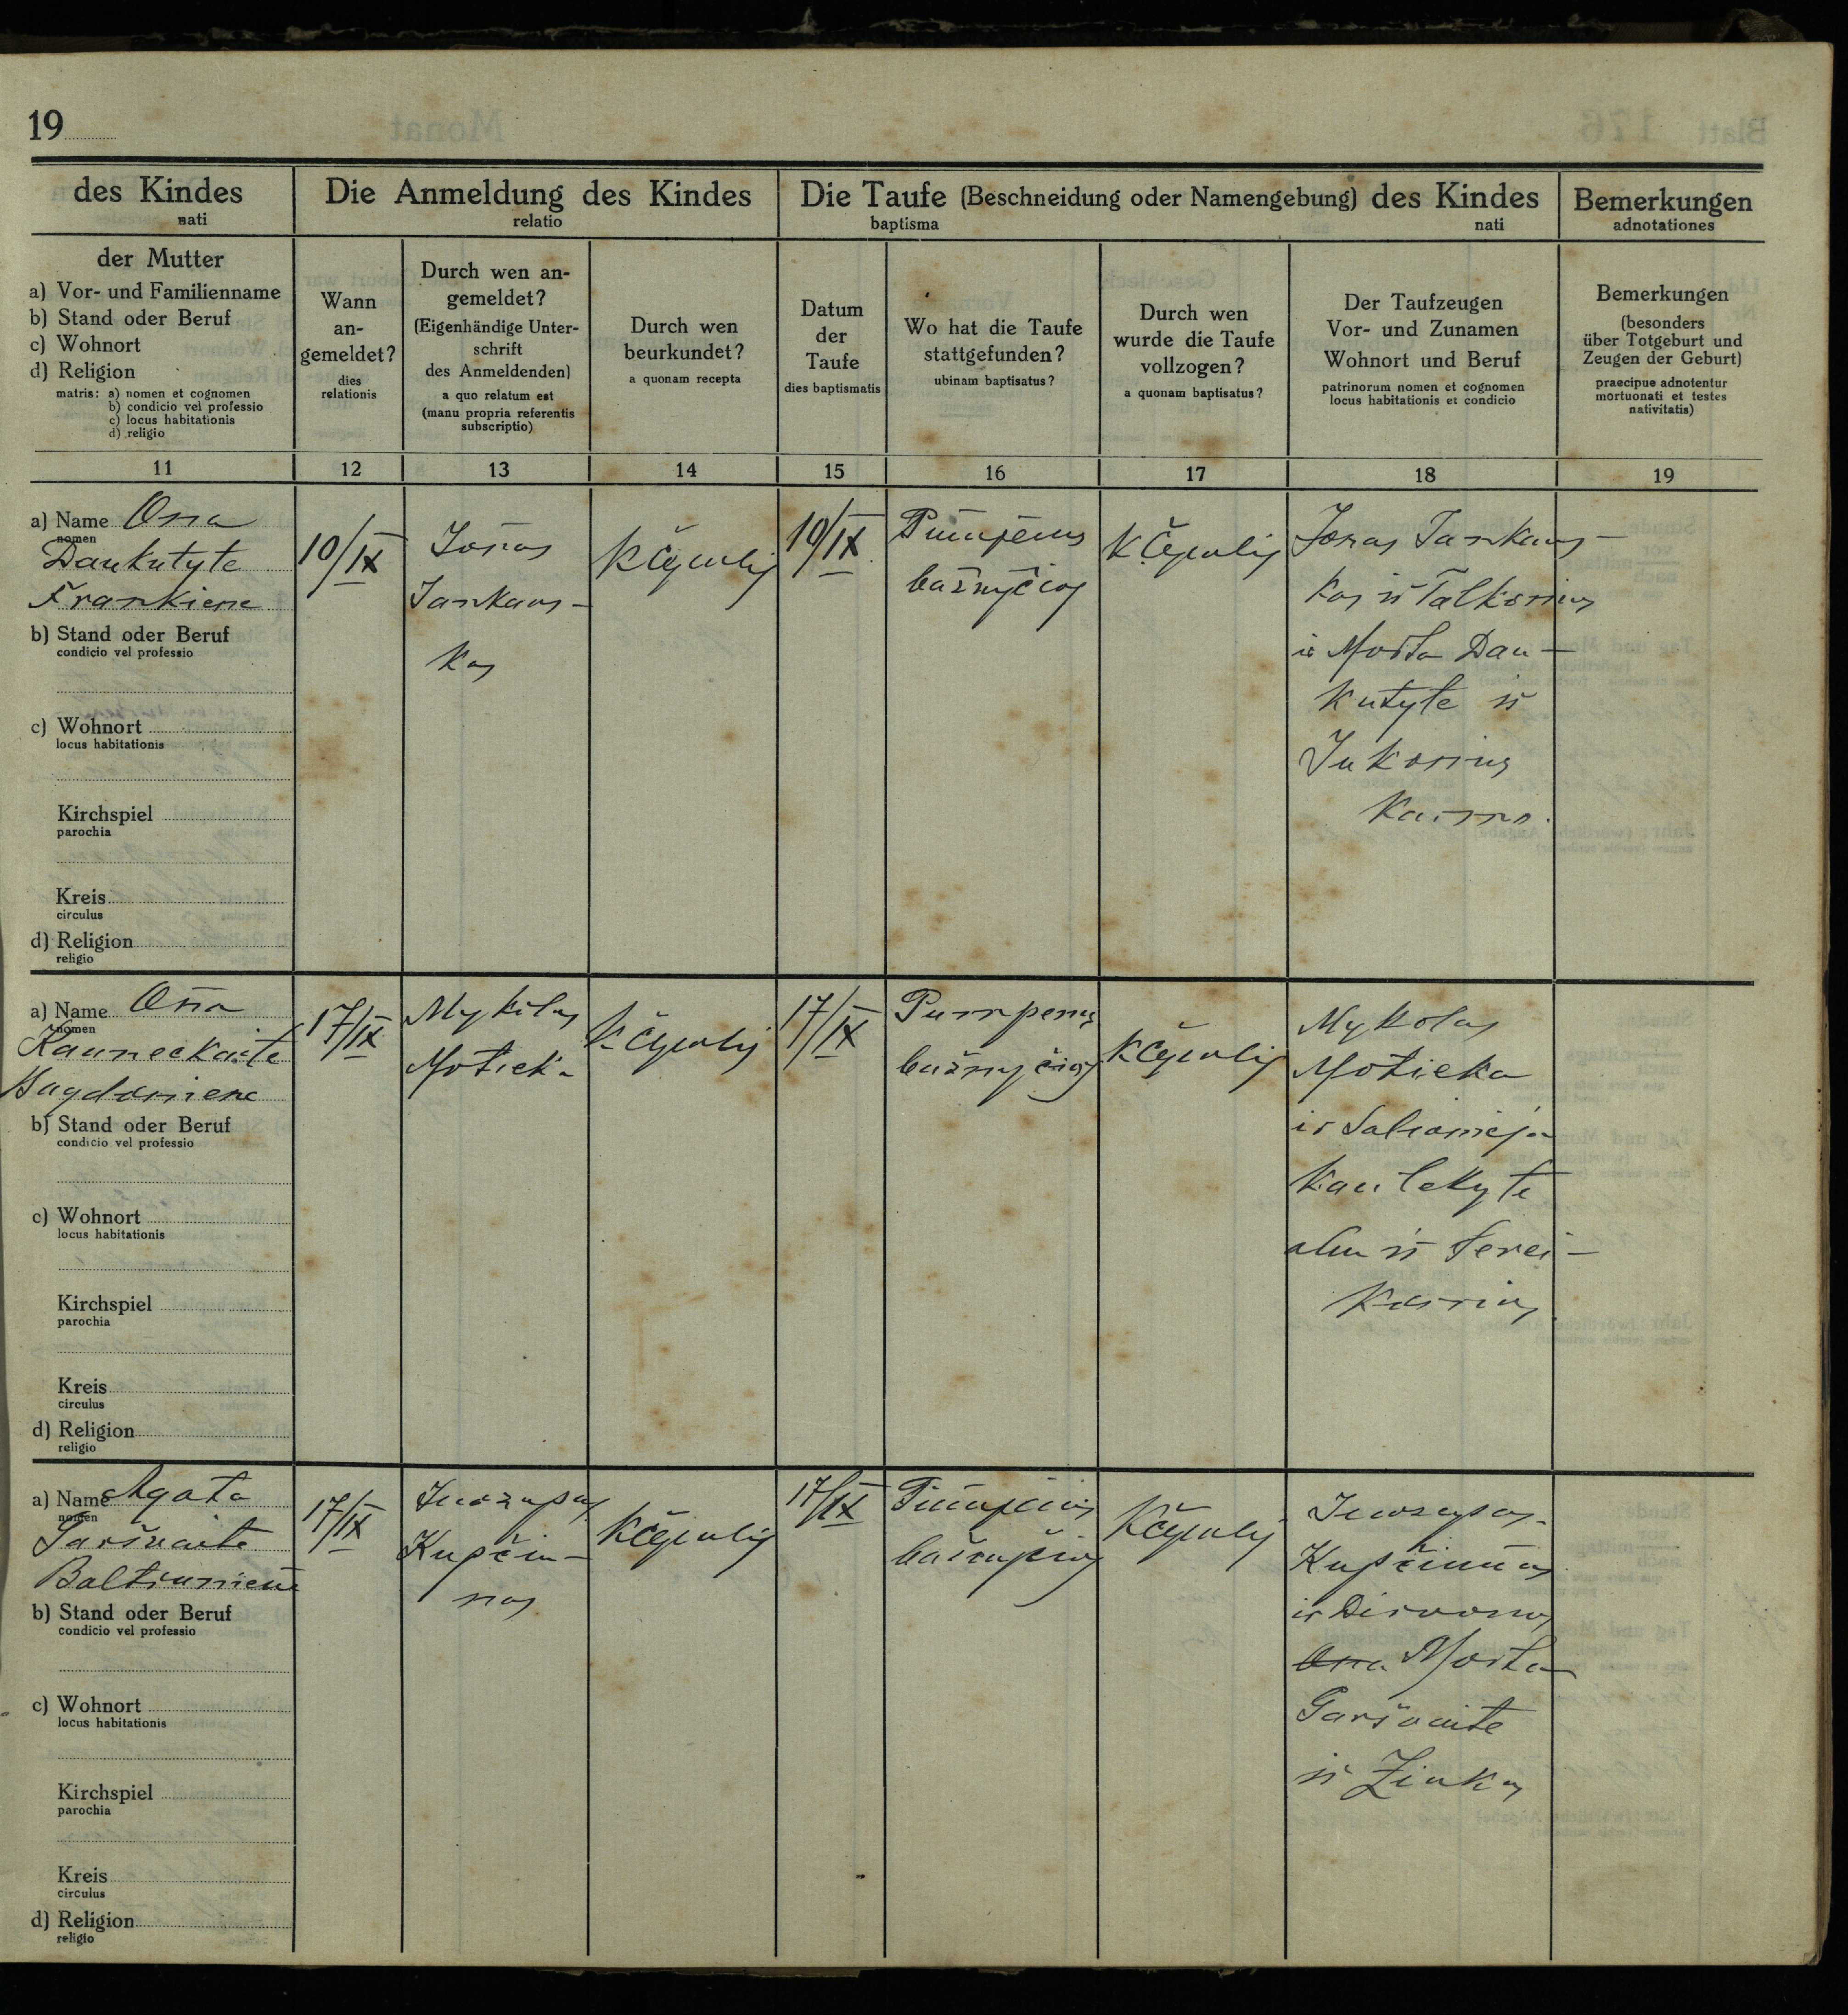 19
des Kindes
nati
Die Anmeldung des Kindes
relatio
Die Taufe (Beschneidung oder Namengebung) des Kindes
baptisma nati
Bemerkungen
adnotationes
der Mutter
a) Vor- und Familienname
b) Stand oder Beruf
c) Wohnort
d) Religion
matris: a) nomen et cognomen
b) condicio vel professio
c) locus habitationis
d) religio
Wann
an-
gemeldet?
dies
relationis
Durch wen an-
gemeldet?
(Eigenhändige Unter-
schrift
des Anmeldenden)
a quo relatum est
(manu propria referentis
subscriptio)
Durch wen
beurkundet?
a quonam recepta
Datum
der
Taufe
dies baptismatis
Wo hat die Taufe
stattgefunden?
ubinam baptisatus?
Durch wen
wurde die Taufe
vollzogen?
a quonam baptisatus?
Der Taufzeugen
Vor- und Zunamen
Wohnort und Beruf
patrinorum nomen et cognomen
locus habitationis et condicio
Bemerkungen
(besonders
über Totgeburt und
Zeugen der Geburt)
praecipue adnotentur
mortuonati et testes
nativitatis)
11 12 13 14 15 16 17 18 19
a) Name Ona
nomen
Daukutyte
Frankiene
b) Stand oder Beruf
condicio vel professio
c) Wohnort
locus habitationis
Kirchspiel
parochia
Kreis
circulus
d) Religion
religio
10/IX
Jonas
Jankaus-
kas
10/IX
bažnyčioj
Jonas Jankaus-
kas iš Talkonių
ir Morta Dau-
kutyte iš
Jukonių
Kaimo.
a) Name Ona
nomen
Kauneckaite
b) Stand oder Beruf
condicio vel professio
c) Wohnort
locus habitationis
Kirchspiel
parochia
Kreis
circulus
d) Religion
religio
17/IX
Mykolas
Motieka
17/IX
Pumpenų
bažnyčioj
Mykolas
Motieka
ir Saliomėja
abu iš
a) Name Agota
nomen
Baltruniene
b) Stand oder Beruf
condicio vel professio
c) Wohnort
locus habitationis
Kirchspiel
parochia
Kreis
circulus
d) Religion
religio
17/IX
Juozapas
Kupčiu-
nas
17/IX
bažnyčioj
Juozapas
Kupčiunas
ir
Ona Morta
Garšvaite
iš